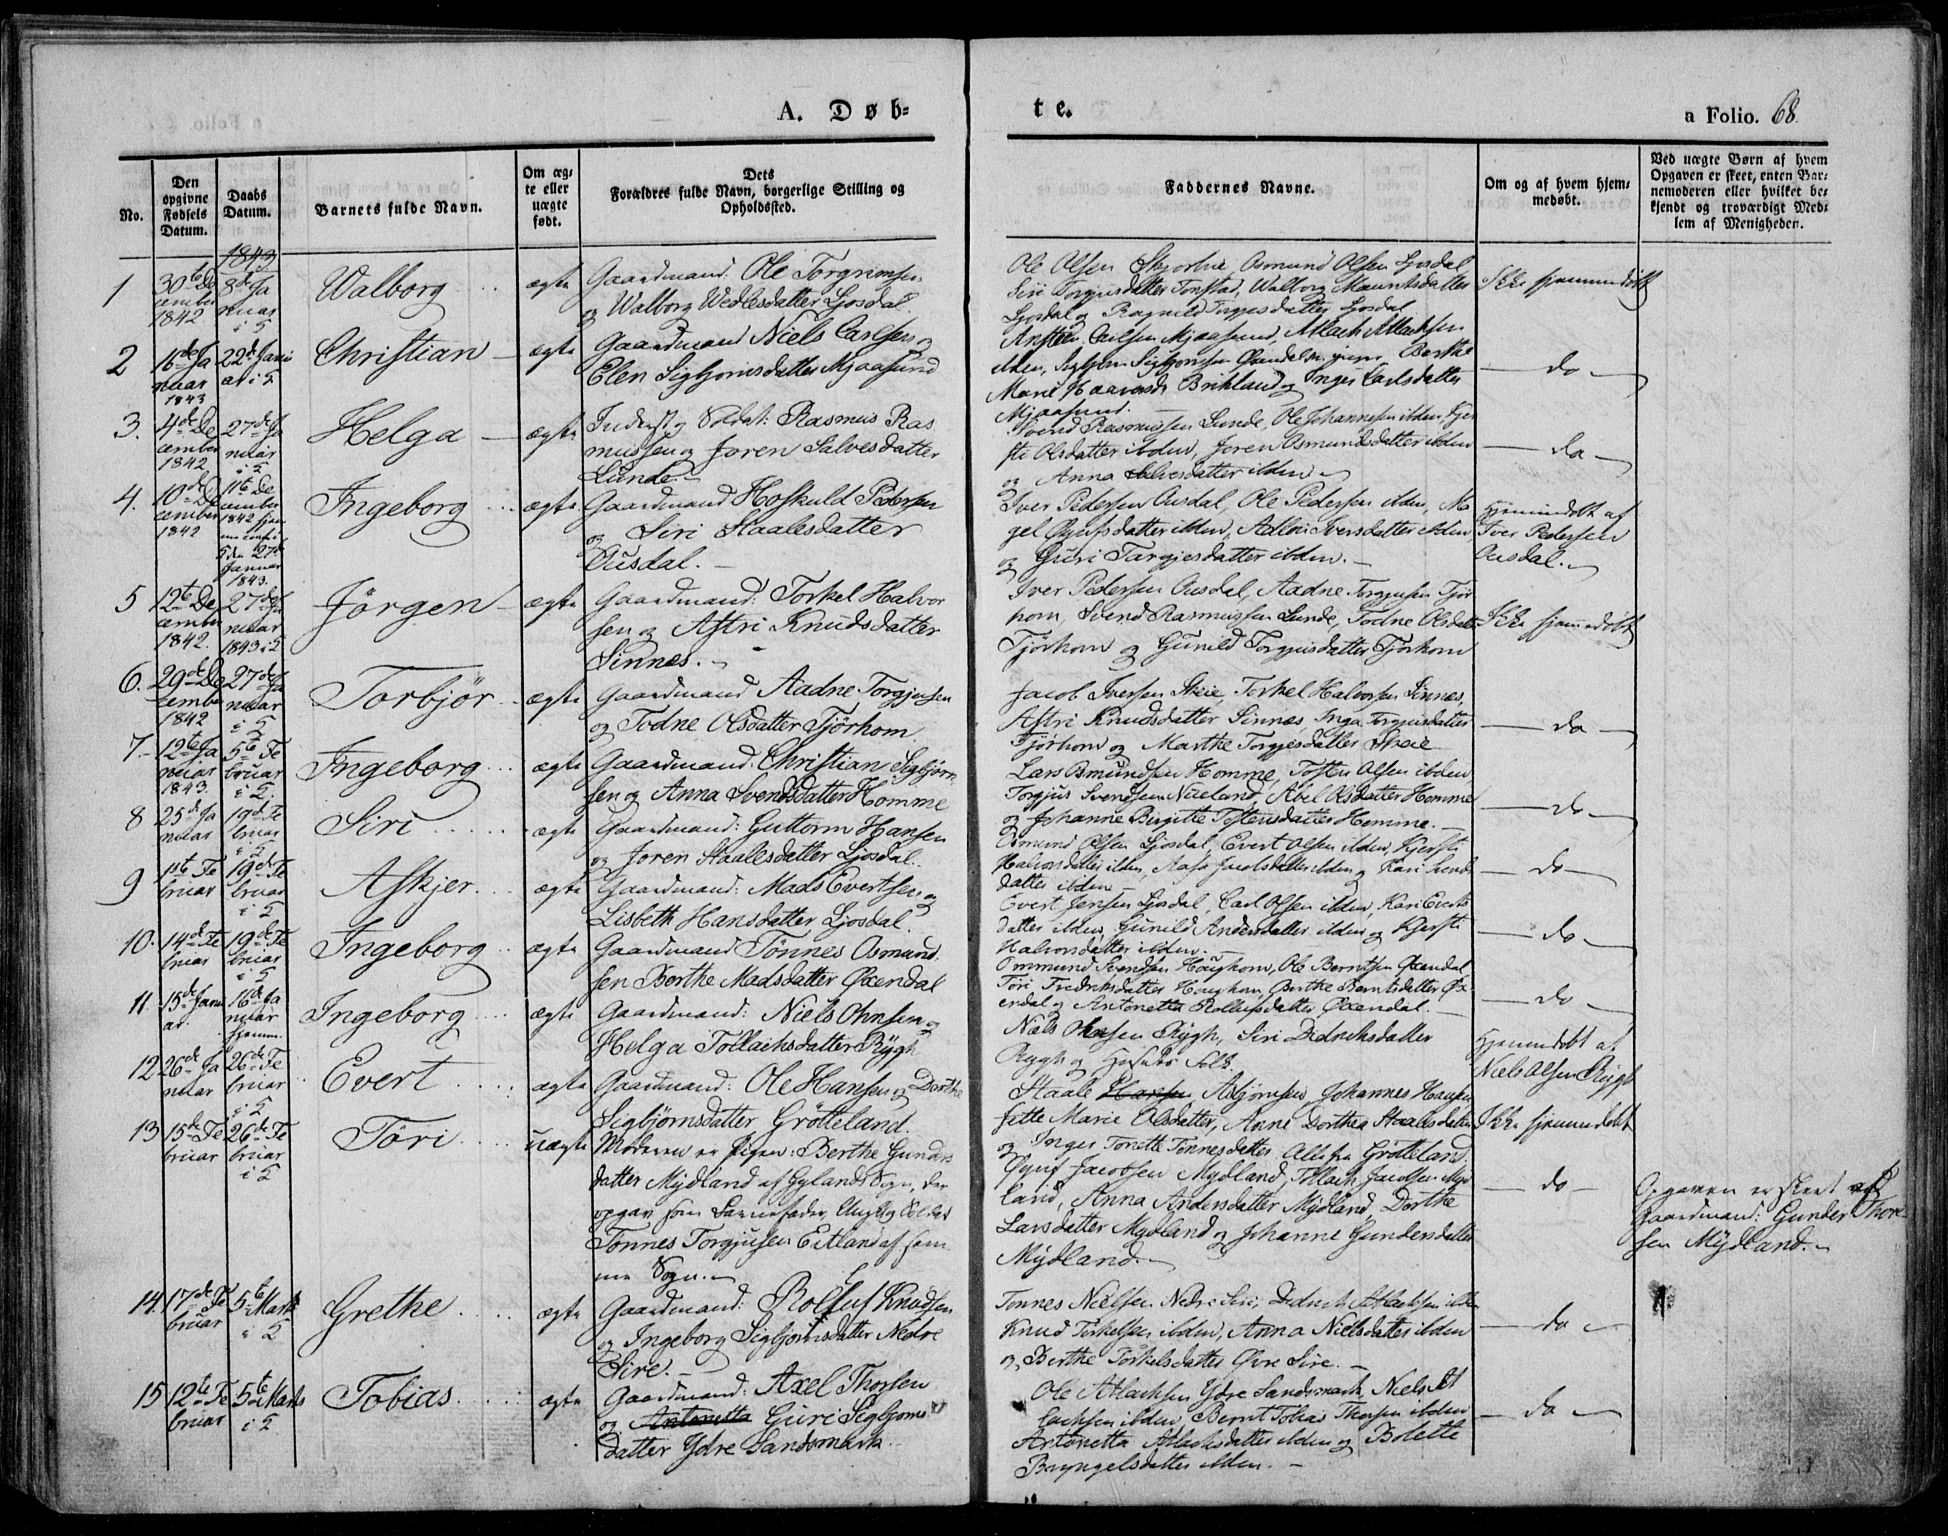 A. Døb=
te.
a Folio. 68.
No.
Den opgivne Fødsels Datum.
Daabs Datum.
Barnets fulde Navn.
Om ægte eller uægte født.
Dets Forældres fulde Navn, borgerlige Stilling og Opholdssted.
Faddernes Navne.
Om og af hvem hjemmedøbt.
Ved uægte Børn af hvem Opgaven er skeet, enten Barnemoderen eller hvilket bekjendt og troværdigt Medlem af Menigheden.
1843
1
30te De
cember
1842
8de Ja
nuar
i K
Walborg
ægte
Gaardmand: Ole Torgrimsen
og Walborg Wedlesdatter Ljosdal.
Ole Olsen Osmund Olsen Ljosdal
Siri Torgjusdatter Tonstad, Walborg Mauritsdatter
Ljosdal og Ragnild Torgjusdatter Ljosdal
Ikke hjemmedöbt
2
Ja
nuar
1843
22de Janu
ar i
Christian
ægte
Gaardmand Niels Carlsen og
Elen Sigbjornsdatter Mjaasund
Carlsen Mjaasund, Atlach Atlachsen
ibden, Sigbjorn Sigbjornsen Berthe
Marie Birkeland og Inger Carlsdatter
Mjaasund.
do
3.
4de De
cember
1842
27de Ja
nuar
Helga
ægte
Inderst og Soldat: Rasmus Ras
mussen og Joren Salvesdatter
Lunde.
Svend Rasmussen Lunde, Ole Johannesen ibden, Kjer
sti Olsdatter ibden, Joren Osmundsdatter ibden
og Anna Salvesdatter ibden
do
4.
10de De
cember
1842
11te De
cember
1842 hjem
den 27de
Januar
1843.
Ingeborg
ægte
Gaardmand Hoskuld Pedersen
og Siri Staalesdatter
Ousdal.
Iver Pedersen Ousdal, Ole Pedersen ibden,
datter ibden, Iversdatter ibden
og Guri Targjesdatter ibden.
Hjemmedöbt af
Iver Pedersen
Ousdal.
5
12te De
cember
1842.
27de Ja
nuar
1843 i
Jörgen
ægte
Gaardmand: Torkel Halvor
sen og Astri Knudsdatter
Sinnes.
Iver Pedersen Ousdal, Aadne Torgjusen Tjör
hom, Svend Rasmussen Lunde, Todne Olsdatter
Tjörhom og Gunild Torgjusdatter Tjörhom
Ikke hjemmedöbt
6.
29de De
cember
1842
27de Ja
nuar
Torbjör
ægte
Gaardmand Aadne Torgjusen
og Todne Olsdatter Tjörhom
Jacob Iversen Skeie, Torkel Halvorsen Sinnes,
Astri Knudsdatter Sinnes Inga Torgjusdatter
Tjörhom og Marthe Torgjesdatter Skeie
do
7
12te Ja
nuar
1843.
5te Fe
bruar
Ingeborg
ægte
Gaardmand: Christian Sigbjörn
sen og Anna Svendsdatter Homme
Lars Osmundsen Homme, Tosten Olsen ibden
Torgjus Svendsen Næeland, Abel Olsdatter Homme
og Johanne Birgitte Tostensdatter Homme.
do
8
25de Ja
nuar
19de Fe
bruar
Siri
ægte
Gaardmand: Guttorm Hansen
og Joren Staalesdatter Ljosdal.
Osmund Olsen Ljosdal, Evert Olsen ibden, Kjersti
Halvorsdatter ibden, Aasa Jacobsdatter ibden og Kari
datter ibden
do
9
11te Fe
bruar
19de Fe
bruar
Askjer
ægte
Gaardmand: Mads Evertsen og
Lisbeth Hansdatter Ljosdal.
Evert Jensen Ljosdal, Carl Olsen ibden, Kari Everts
datter ibden, Gunild Andersdatter ibden og Kjersti
Halvorsdatter ibden.
do
10.
14de Fe
bruar
19de Fe
bruar
Ingeborg
ægte
Gaardmand Tönnes Osmund
sen Borthe Madsdatter Öxendal
Ommund Svendsen Houghom, Ole Berntsen Öxendal
Töri Fredriksdatter Houghom, Berthe Berntsdatter Öx
endal og Antonetta Rollufsdatter Öxendal.
do
11.
15de Janu
ar.
16de Ja
nuar
hjemm.
Ingeborg
ægte
Gaardmand: Niels Ohnsen og
Helga Tollachsdatter Rygh
Niels Ohnsen Rygh, Siri Didriksdatter
Rygh og Folk.
Hjemmedöbt af
Niels Olsen Rygh
12
26de Ja
nuar
26de Fe
bruar
Evert
ægte
Gaardmand: Ole Hansen og Dorthe
Sigbjörnsdatter Grötteland.
Staale Asbjörnsen, Johannes Hansen
Marie Olsdatter, Anne Dorthea Staalesdatter
og Inger Tonette Tönnesdatter, Alle fra Grötteland.
Ikke hjemmedöbt
13
15de Fe
bruar
26de Fe
bruar
Töri
uægte
Moderen er Pigen: Berthe Gunders
datter Mydland af Gylands Sogn, der
opgav som Barnefader, Ungkl og Soldat
Tönnes Torgjusen Eitland af sam
me Sogn.
Jacobsen Mydland, Tollach Jacobsen Myd
land, Anna Andersdatter Mydland, Dorthe
Larsdatter Mydland og Johanne Gundersdatter
Mydland.
do
Opgaven er skeet af
Gaardmand: Gunder Thore
sen Mydland.
14.
17de Fe
bruar
5te Marts
Grethe
ægte
Gaardmand: Rolluf Knudsen
og Ingeborg Sigbjörnsdatter Nedre
Sire.
Tonnes Nielsen Nedre Sire, Didrik Atlachsen ibden
Knud Torkelsen ibden, Anna Nielsdatter ibden
og Berthe Torkelsdatter Övre Sire.
do
15
12te Fe
bruar
5te Marts
Tobias
ægte
Gaardmand: Axel Thorsen
og Antonetta Guri Sigbjorns
datter Ydre Sandsmark.
Ole Atlachsen Ydre Sandsmark, Niels At
lachsen ibden, Bernt Tobias Thorsen ibden
Antonetta Atlachsdatter ibden og Bolette
Bryngelsdatter ibden.
do